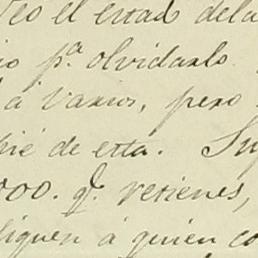 veo el estado dela
io pª olvidarlo
á varios, pero
hé de esta. Su
000. q.e retienes,
liquen á quien co